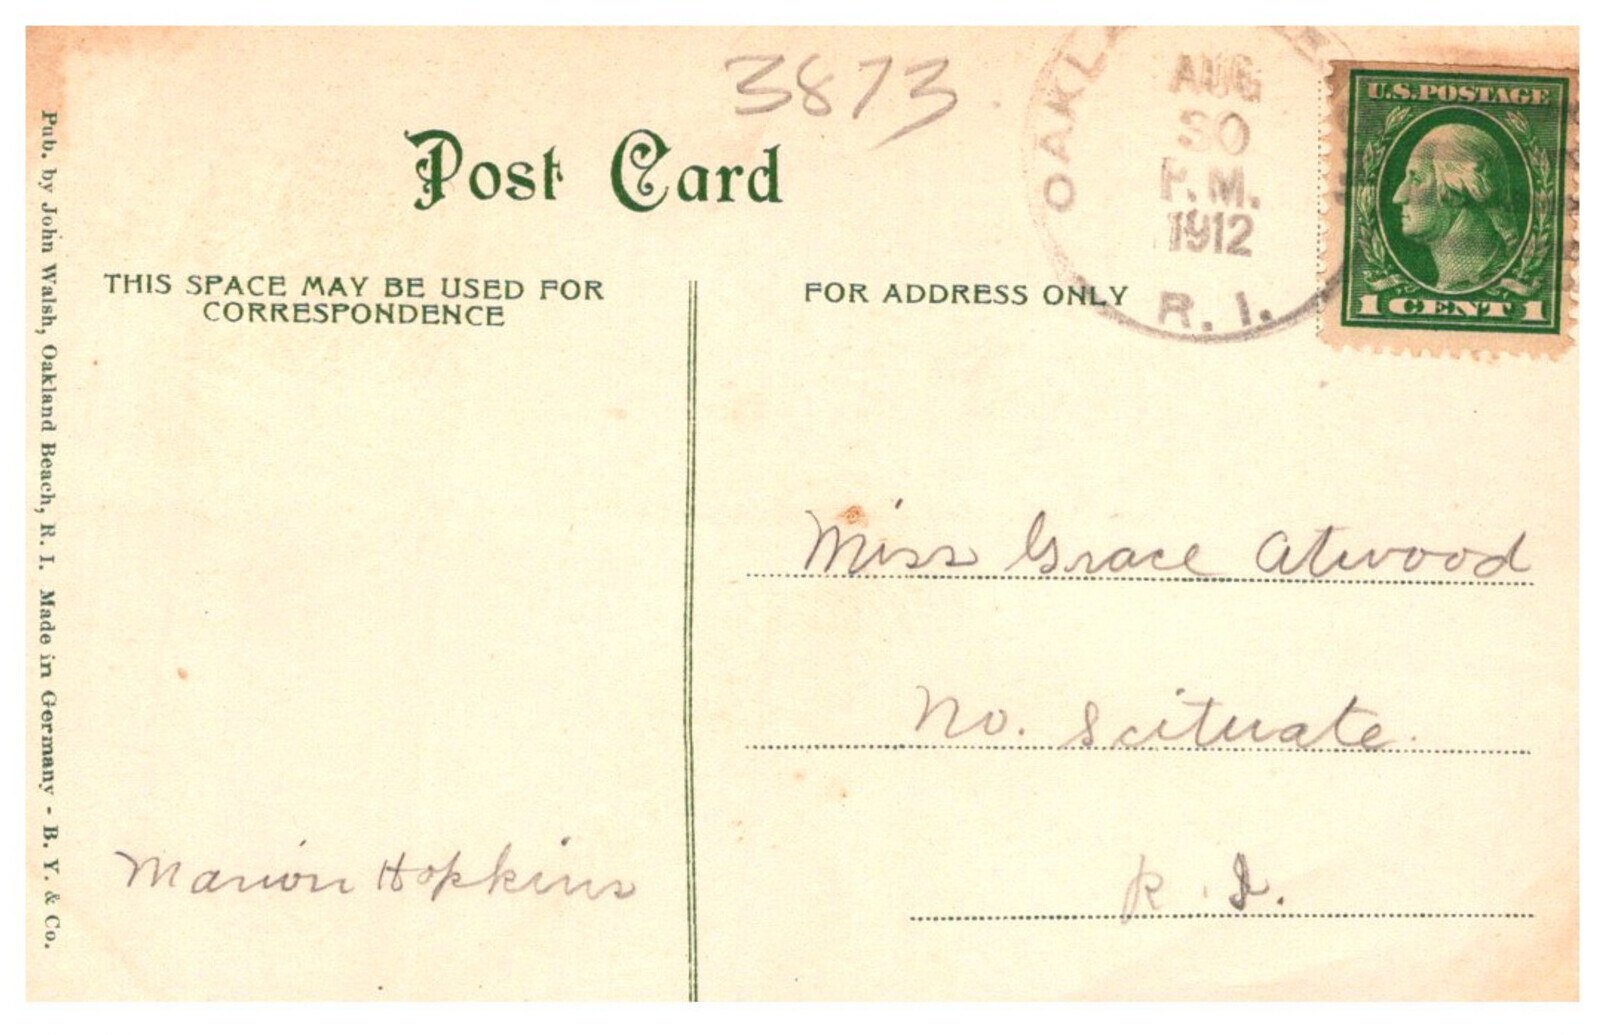 3873
Post Card
AUG
30
P.M.
1912
R. I.
U.S. POSTAGE
1 CENT 1
THIS SPACE MAY BE USED FOR
CORRESPONDENCE
FOR ADDRESS ONLY
Pub. by John Walsh, Oakland Beach, R. I. Made in Germany - B. Y. & Co.
Miss Grace Atwood
No. Scituate.
R. I.
Marion Hopkins